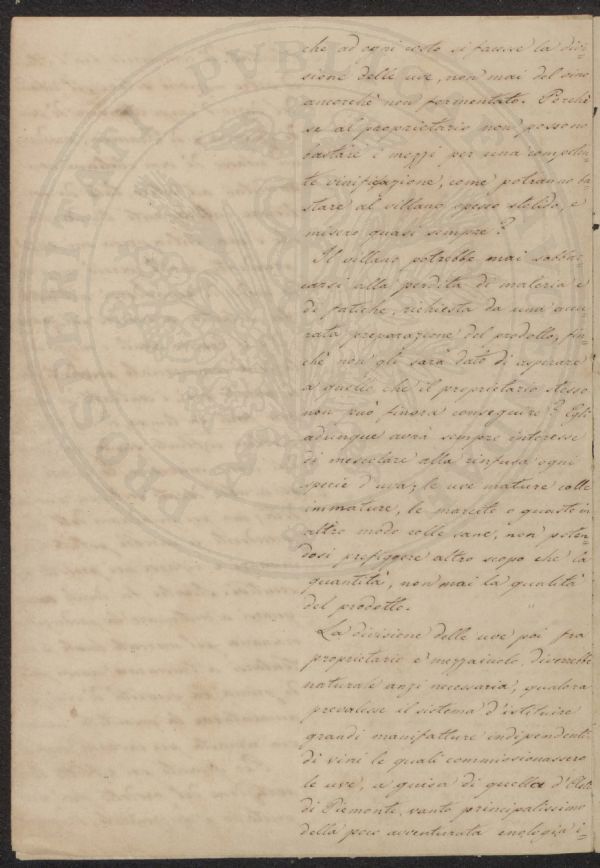 che ad ogni costo si facesse la divi-
sione delle uve, non mai del vino
ancorchè non fermentato. Perchè
se al proprietario non possono
bastare i mezzi per una competen-
te vinificazione, come potranno ba
stare al villano spesso stolido, e
misero quasi sempre?
Il villano potrebbe mai sobbar-
carsi alla perdita di materia e
di fatiche, richiesta da una accu-
rata preparazione del prodotto, fin-
chè non gli sarà dato di aspirare
a quello che il proprietario stesso
non può finora conseguire? Egli
adunque avrà sempre interesse
di mescolare alla rinfusa ogni
specie d'uva; le uve mature colle
immature, le marcite o guaste in
altro modo colle sane, non poten-
dosi prefiggere altro scopo che la
quantità, non mai la qualità
del prodotto.
La divisione delle uve poi fra
proprietario e mezzaiuolo, diverrebbe
naturale anzi necessaria, qualora
prevalesse il sistema d'istituire
grandi manifatture indipendenti
di vini le quali commissionassero
le uve, a guisa di quella d'Asti
di Piemonte, vanto principalissimo
della poco avventurata enologia i-
PROSPERITATI PUBLICAE